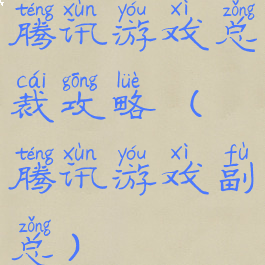 téng xùn yóu xì zǒng
腾讯游戏总
cái gōng lüè
裁攻略（
téng xùn yóu xì fù
腾讯游戏副
zǒng
总）